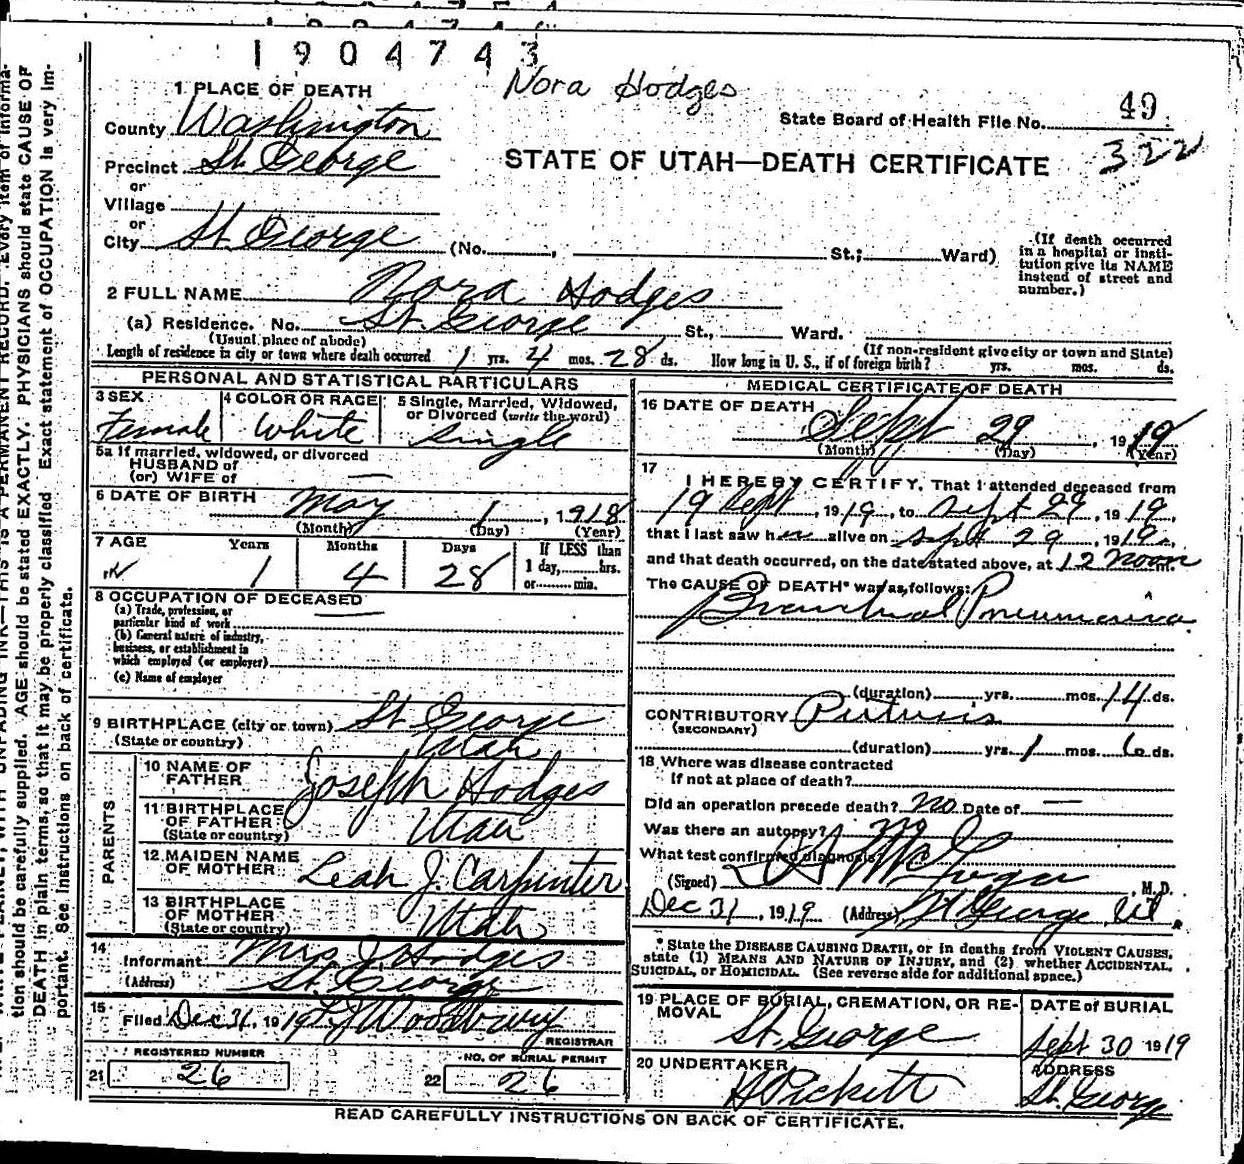 1904743
Nora Hodges
1 PLACE OF DEATH
State Board of Health File No. 49
322
County Washington
STATE OF UTAH—DEATH CERTIFICATE
Precinct St. George
or
Village
or
City St. George (No. , St.; Ward)
(If death occurred
in a hospital or insti-
tution give its NAME
instead of street and
number.)
2 FULL NAME Nora Hodges
(a) Residence. No. St. George St., Ward.
(Usual place of abode)
(If non-resident give city or town and State)
Length of residence in city or town where death occurred 1 yrs. 4 mos. 28 ds. How long in U. S., if of foreign birth? yrs. mos. ds.
PERSONAL AND STATISTICAL PARTICULARS
3 SEX
Female
4 COLOR OR RACE
White
5 Single, Married, Widowed,
or Divorced (write the word)
Single
5a If married, widowed, or divorced
HUSBAND of
(or) WIFE of —
6 DATE OF BIRTH May 1, 1918
(Month) (Day) (Year)
7 AGE Years Months Days If LESS than
1 4 28 1 day, hrs.
or min.
8 OCCUPATION OF DECEASED —
(a) Trade, profession, or
particular kind of work
(b) General nature of industry,
business, or establishment in
which employed (or employer)
(c) Name of employer
9 BIRTHPLACE (city or town) St. George
(State or country) Utah
PARENTS
10 NAME OF
FATHER Joseph Hodges
11 BIRTHPLACE
OF FATHER
(State or country) Utah
12 MAIDEN NAME
OF MOTHER Leah J. Carpenter
13 BIRTHPLACE
OF MOTHER
(State or country) Utah
14
Informant Mrs J. Hodges
(Address) St. George
15
Filed Dec 31, 1919 Woodbury
REGISTRAR
REGISTERED NUMBER
21 26
NO. OF BURIAL PERMIT
22 26
MEDICAL CERTIFICATE OF DEATH
16 DATE OF DEATH
Sept 29, 1919
(Month) (Day) (Year)
17
I HEREBY CERTIFY, That I attended deceased from
19 Sept, 1919, to Sept 29, 1919,
that I last saw her alive on Sept 29, 1919,
and that death occurred, on the date stated above, at 12 noon
The CAUSE OF DEATH* was as follows:
Bronchial Pneumonia
(duration) yrs. mos. 14 ds.
CONTRIBUTORY Pertussis
(SECONDARY)
(duration) yrs. 1 mos. 6 ds.
18 Where was disease contracted
if not at place of death?
Did an operation precede death? no Date of —
Was there an autopsy? no
What test confirmed diagnosis?
(Signed) McGregor, M.D.
Dec 31, 1919 (Address) St George, Ut.
* State the DISEASE CAUSING DEATH, or in deaths from VIOLENT CAUSES,
state (1) MEANS AND NATURE OF INJURY, and (2) whether ACCIDENTAL,
SUICIDAL, or HOMICIDAL. (See reverse side for additional space.)
19 PLACE OF BURIAL, CREMATION, OR RE-
MOVAL
St. George
DATE of BURIAL
Sept 30 1919
20 UNDERTAKER
Pickett
ADDRESS
St. George
READ CAREFULLY INSTRUCTIONS ON BACK OF CERTIFICATE.
tion should be carefully supplied. AGE should be stated EXACTLY. PHYSICIANS should state CAUSE OF
DEATH in plain terms, so that it may be properly classified. Exact statement of OCCUPATION is very im-
portant. See instructions on back of certificate.